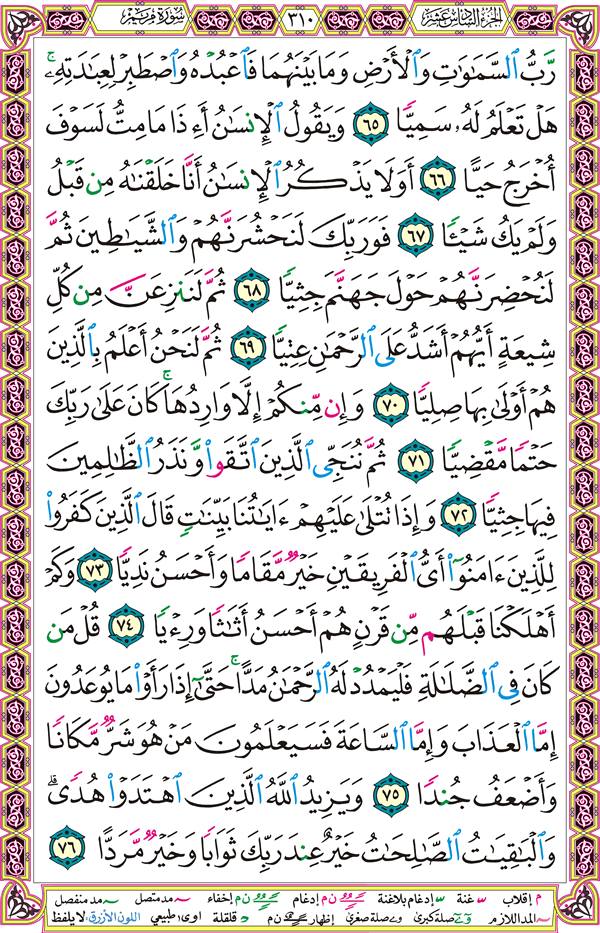 الجزء السادس عشر ٣١٠ سورة مريم
رَّبُّ ٱلسَّمَٰوَٰتِ وَٱلْأَرْضِ وَمَا بَيْنَهُمَا فَٱعْبُدْهُ وَٱصْطَبِرْ لِعِبَٰدَتِهِۦۚ
هَلْ تَعْلَمُ لَهُۥ سَمِيًّا ٦٥ وَيَقُولُ ٱلْإِنسَٰنُ أَءِذَا مَا مِتُّ لَسَوْفَ
أُخْرَجُ حَيًّا ٦٦ أَوَلَا يَذْكُرُ ٱلْإِنسَٰنُ أَنَّا خَلَقْنَٰهُ مِن قَبْلُ
وَلَمْ يَكُ شَيْـًٔا ٦٧ فَوَرَبِّكَ لَنَحْشُرَنَّهُمْ وَٱلشَّيَٰطِينَ ثُمَّ
لَنُحْضِرَنَّهُمْ حَوْلَ جَهَنَّمَ جِثِيًّا ٦٨ ثُمَّ لَنَنزِعَنَّ مِن كُلِّ
شِيعَةٍ أَيُّهُمْ أَشَدُّ عَلَى ٱلرَّحْمَٰنِ عِتِيًّا ٦٩ ثُمَّ لَنَحْنُ أَعْلَمُ بِٱلَّذِينَ
هُمْ أَوْلَىٰ بِهَا صِلِيًّا ٧٠ وَإِن مِّنكُمْ إِلَّا وَارِدُهَاۚ كَانَ عَلَىٰ رَبِّكَ
حَتْمًا مَّقْضِيًّا ٧١ ثُمَّ نُنَجِّى ٱلَّذِينَ ٱتَّقَوا۟ وَّنَذَرُ ٱلظَّٰلِمِينَ
فِيهَا جِثِيًّا ٧٢ وَإِذَا تُتْلَىٰ عَلَيْهِمْ ءَايَٰتُنَا بَيِّنَٰتٍ قَالَ ٱلَّذِينَ كَفَرُوا۟
لِلَّذِينَ ءَامَنُوٓا۟ أَىُّ ٱلْفَرِيقَيْنِ خَيْرٌ مَّقَامًا وَأَحْسَنُ نَدِيًّا ٧٣ وَكَمْ
أَهْلَكْنَا قَبْلَهُم مِّن قَرْنٍ هُمْ أَحْسَنُ أَثَٰثًا وَرِءْيًا ٧٤ قُلْ مَن
كَانَ فِى ٱلضَّلَٰلَةِ فَلْيَمْدُدْ لَهُ ٱلرَّحْمَٰنُ مَدًّاۚ حَتَّىٰٓ إِذَا رَأَوْا۟ مَا يُوعَدُونَ
إِمَّا ٱلْعَذَابَ وَإِمَّا ٱلسَّاعَةَ فَسَيَعْلَمُونَ مَنْ هُوَ شَرٌّ مَّكَانًا
وَأَضْعَفُ جُندًا ٧٥ وَيَزِيدُ ٱللَّهُ ٱلَّذِينَ ٱهْتَدَوْا۟ هُدًىۗ
وَٱلْبَٰقِيَٰتُ ٱلصَّٰلِحَٰتُ خَيْرٌ عِندَ رَبِّكَ ثَوَابًا وَخَيْرٌ مَّرَدًّا ٧٦
م إقلاب غنة إدغام بلاغنة ن م إدغام ن م إخفاء مد متصل مد منفصل
المد اللازم صلة كبرى صلة صغرى إظهار ن م قلقلة اوى طبيعي اللون الأزرق لا يلفظ